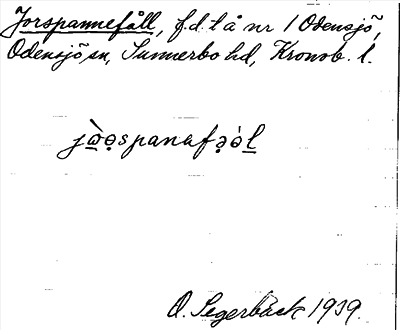 Jorspannefåll, f.d. l å nr 1 Odensjö,
Odensjö sn, Sunnerbo hd, Kronob. l.
O. Segerbäck 1939.